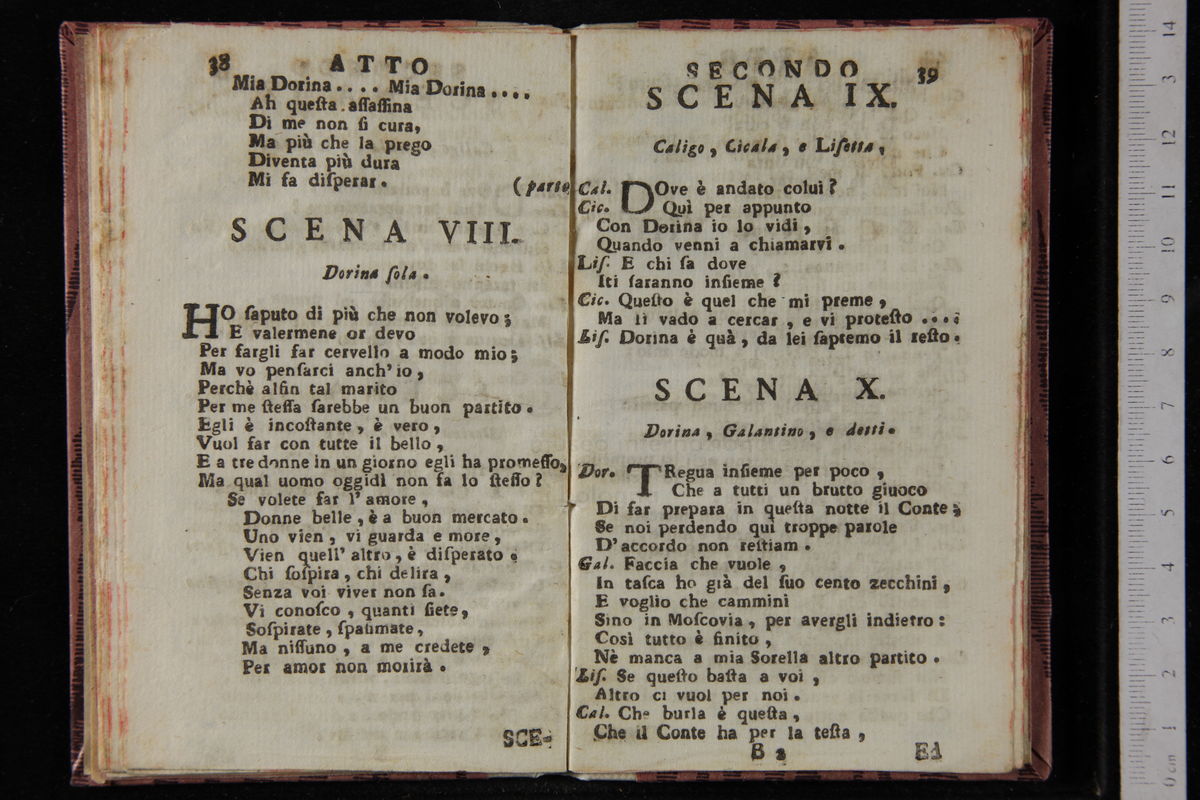 38 ATTO
Mia Dorina.... Mia Dorina....
Ah queſta aſſaſſina
Di me non ſi cura,
Ma più che la prego
Diventa più dura
Mi fa diſperar. (parte
SCENA VIII.
Dorina ſola.
HO ſaputo di più che non volevo;
E valermene or devo
Per fargli far cervello a modo mio;
Ma vo penſarci anch'io,
Perchè alfin tal marito
Per me ſteſſa ſarebbe un buon partito.
Egli è incoſtante, è vero,
Vuol far con tutte il bello,
E a tre donne in un giorno egli ha promeſſo,
Ma qual uomo oggidì non fa lo ſteſſo?
Se volete far l'amore,
Donne belle, è a buon mercato.
Uno vien, vi guarda e more,
Vien quell'altro, è diſperato.
Chi ſoſpira, chi delira,
Senza voi viver non ſa.
Vi conoſco, quanti ſiete,
Soſpirate, ſpaſimate,
Ma niſſuno, a me credete,
Per amor non morirà.
SCE-
SECONDO 39
SCENA IX.
Caligo, Cicala, e Liſetta,
Cal. DOve è andato colui?
Cic. Quì per appunto
Con Dorina io lo vidi,
Quando venni a chiamarvi.
Liſ. E chi ſa dove
Iti ſaranno inſieme?
Cic. Queſto è quel che mi preme,
Ma li vado a cercar, e vi proteſto....
Liſ. Dorina è quà, da lei ſapremo il reſto.
SCENA X.
Dorina, Galantino, e detti.
Dor. TRegua inſieme per poco,
Che a tutti un brutto giuoco
Di far prepara in queſta notte il Conte;
Se noi perdendo quì troppe parole
D'accordo non reſtiam.
Gal. Faccia che vuole,
In taſca ho già del ſuo cento zecchini,
E voglio che cammini
Sino in Moſcovia, per avergli indietro:
Così tutto è finito,
Nè manca a mia Sorella altro partito.
Liſ. Se queſto baſta a voi,
Altro ci vuol per noi.
Cal. Che burla è queſta,
Che il Conte ha per la teſta,
B 2 Ed